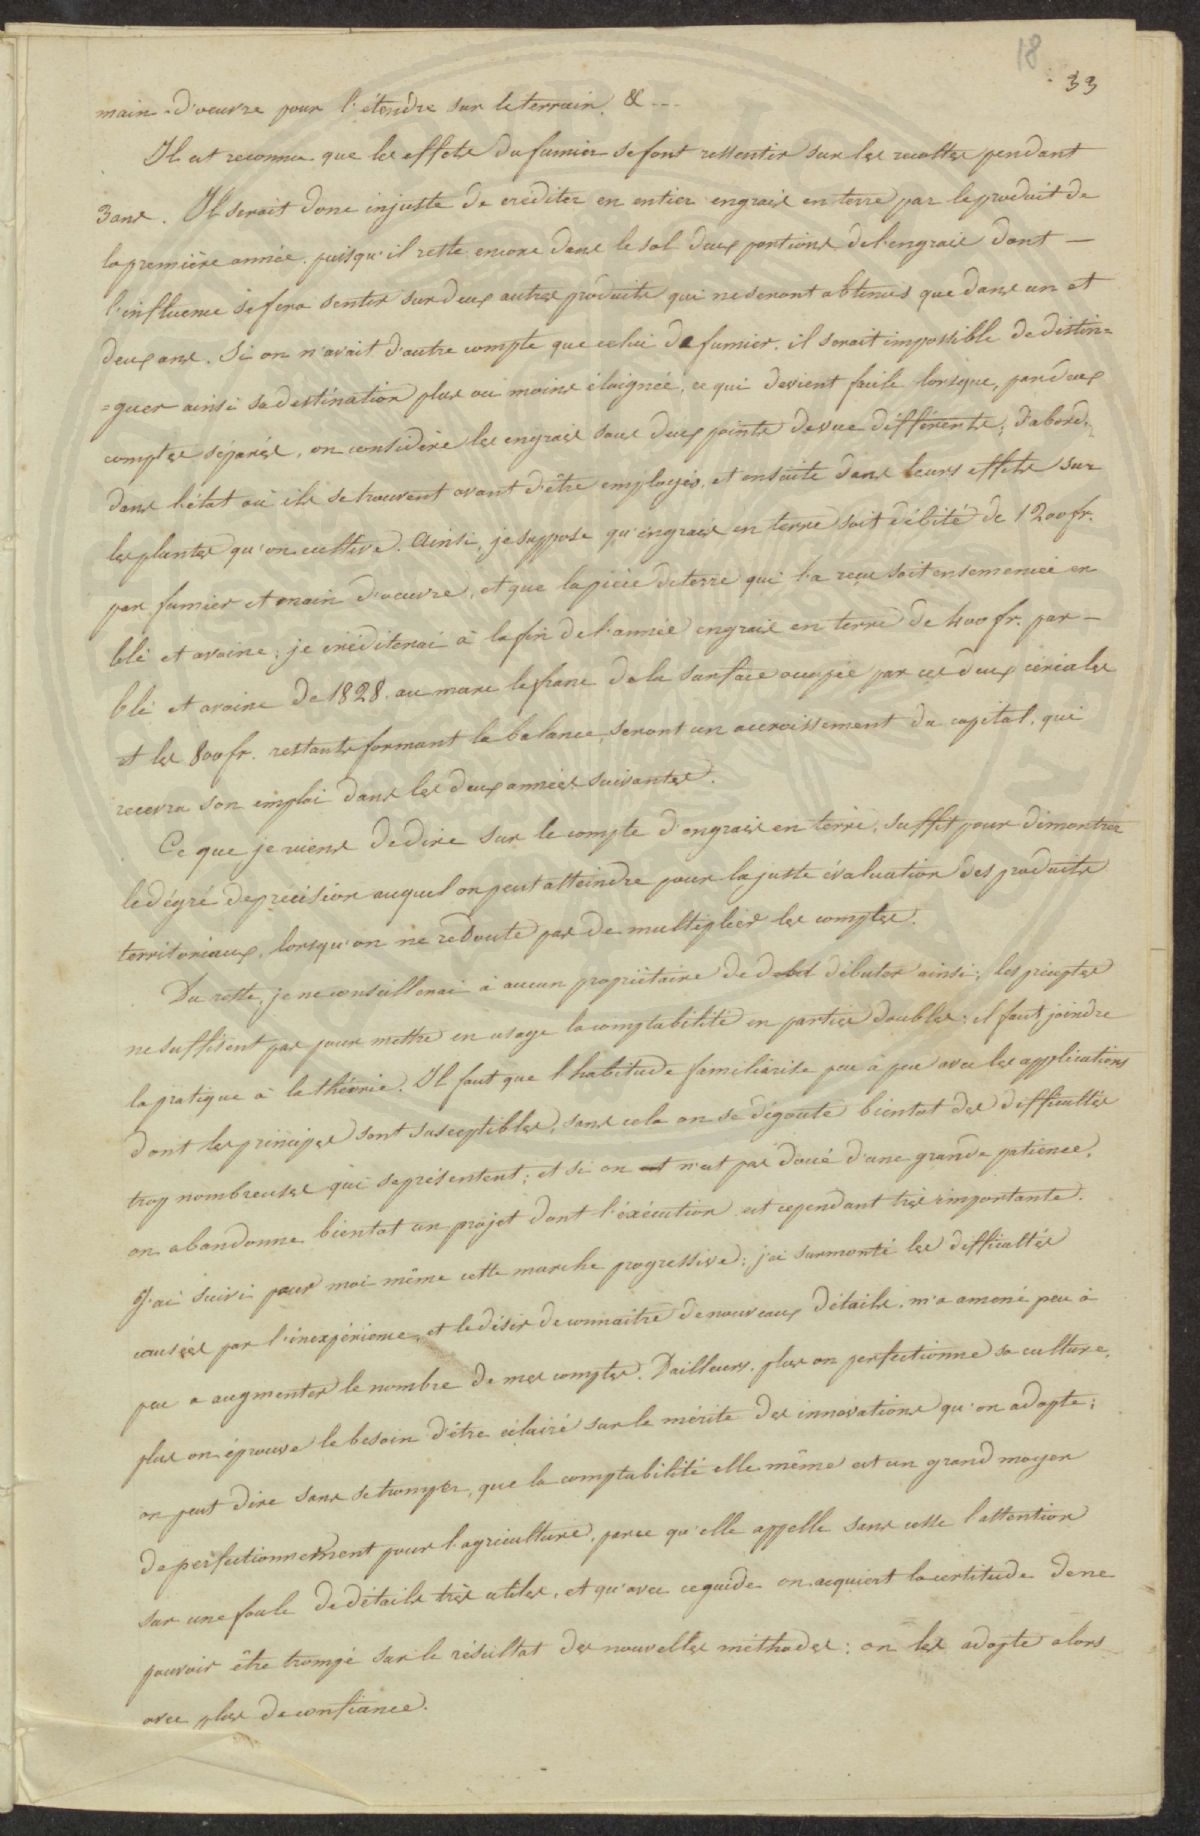 18
33
main-d'œuvre pour l'étendre sur le terrain, & ---
Il est reconnu que les effets du fumier se font ressentir sur les récoltes pendant
3 ans. Il serait donc injuste de créditer en entier engrais en terre par le produit de
la première année, puisqu'il reste encore dans le sol deux portions de l'engrais dont —
l'influence se fera sentir sur deux autres produits qui ne seront obtenus que dans un et
deux ans. Si on n'avait d'autre compte que celui de fumier, il serait impossible de distin=
=guer ainsi sa destination plus ou moins éloignée, ce qui devient facile lorsque, par deux
comptes séparés, on considère les engrais sous deux points de vue différents; d'abord,
dans l'état où ils se trouvent avant d'être employés, et ensuite dans leurs effets sur
les plantes qu'on cultive. Ainsi, je suppose qu'engrais en terre soit débité de 1200 fr.
par fumier et main d'œuvre, et que la pièce de terre qui l'a reçu soit ensemencée en
blé et avoine; je créditerai à la fin de l'année engrais en terre de 400 fr. par —
blé et avoine de 1828 au marc le franc de la surface occupée par ces deux céréales
et les 800 fr. restants formant la balance, seront un accroissement du capital, qui
recevra son emploi dans les deux années suivantes.
Ce que je viens de dire sur le compte d'engrais en terre, suffit pour démontrer
le dégré de précision auquel on peut atteindre pour la juste évaluation des produits
territoriaux, lorsqu'on ne redoute pas de multiplier les comptes.
Du reste, je ne conseillerai à aucun propriétaire de débuter ainsi; les préceptes
ne suffisent pas pour mettre en usage la comptabilité en parties doubles; il faut joindre
la pratique à la théorie. Il faut que l'habitude familiarise peu à peu avec les applications
dont les principes sont susceptibles, sans cela on se dégoute bientot des difficultés
trop nombreuses qui se présentent; et si on n'est pas doué d'une grande patience,
on abandonne bientot un projet dont l'exécution est cependant très importante.
J'ai suivi pour moi même cette marche progressive; j'ai surmonté les difficultés
causées par l'inexpérience, et le désir de connaitre de nouveaux détails, m'a amené peu à
peu a augmenter le nombre de mes comptes. D'ailleurs, plus on perfectionne sa culture,
plus on éprouve le besoin d'être éclairé sur le mérite des innovations qu'on adopte;
on peut dire sans se tromper, que la comptabilité elle même est un grand moyen
de perfectionnement pour l'agriculture, parce qu'elle appelle sans cesse l'attention
sur une foule de détails très utiles, et qu'avec ce guide on acquiert la certitude de ne
pouvoir être trompé sur le résultat des nouvelles méthodes: on les adopte alors
avec plus de confiance.